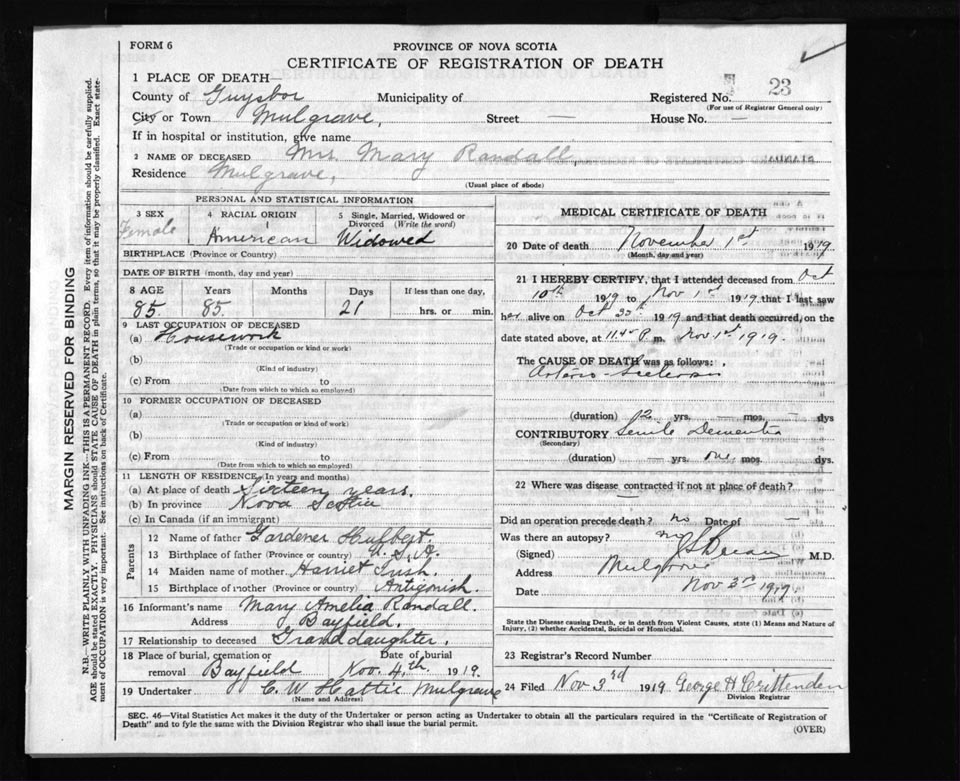 FORM 6
PROVINCE OF NOVA SCOTIA
CERTIFICATE OF REGISTRATION OF DEATH
1 PLACE OF DEATH—
County of Guysbor Municipality of Registered No. 23
(For use of Registrar General only)
City or Town Mulgrave, Street — House No. —
If in hospital or institution, give name
2 NAME OF DECEASED Mrs. Mary Randall
Residence Mulgrave,
(Usual place of abode)
PERSONAL AND STATISTICAL INFORMATION
3 SEX 4 RACIAL ORIGIN 5 Single, Married, Widowed or Divorced (Write the word)
Female American Widowed
BIRTHPLACE (Province or Country)
DATE OF BIRTH (month, day and year)
8 AGE Years Months Days If less than one day,
85. 85. 21 hrs. or min.
9 LAST OCCUPATION OF DECEASED
(a) Housework
(Trade or occupation or kind or work)
(b)
(Kind of industry)
(c) From to
(Date from which to which so employed)
10 FORMER OCCUPATION OF DECEASED
(a)
(Trade or occupation or kind of work)
(b)
(Kind of industry)
(c) From to
(Date from which to which so employed)
11 LENGTH OF RESIDENCE (In years and months)
(a) At place of death Sixteen years.
(b) In province Nova Scotia
(c) In Canada (if an immigrant)
Parents
12 Name of father Gardener Hulbert.
13 Birthplace of father (Province or country) U. S. A.
14 Maiden name of mother Harriet
15 Birthplace of mother (Province or country) Antigonish.
16 Informant's name Mary Amelia Randall.
Address Bayfield.
17 Relationship to deceased Granddaughter.
18 Place of burial, cremation or removal Date of burial
Bayfield Nov. 4th, 1919.
19 Undertaker C. W. Hattie Mulgrave
(Name and Address)
MEDICAL CERTIFICATE OF DEATH
20 Date of death November 1st 1919
(Month, day and year)
21 I HEREBY CERTIFY, that I attended deceased from Oct
10th 1919 to Nov 1st 1919 that I last saw
her alive on Oct 1919 and that death occurred, on the
date stated above, at 11.45 P. m. Nov 1st 1919.
The CAUSE OF DEATH was as follows:
Arterio-Sclerosis
(duration) 12 yrs. — mos. — dys
CONTRIBUTORY Senile Dementia
(Secondary)
(duration) — yrs. mos. dys.
22 Where was disease contracted if not at place of death?
—
Did an operation precede death? no Date of —
Was there an autopsy? no
(Signed) M.D.
Address Mulgrave
Date Nov 3rd 1919.
State the Disease causing Death, or in death from Violent Causes, state (1) Means and Nature of
Injury, (2) whether Accidental, Suicidal or Homicidal.
23 Registrar's Record Number
24 Filed Nov 3rd 1919 George H Crittenden
Division Registrar
SEC. 46—Vital Statistics Act makes it the duty of the Undertaker or person acting as Undertaker to obtain all the particulars required in the "Certificate of Registration of
Death" and to fyle the same with the Division Registrar who shall issue the burial permit.
(OVER)
MARGIN RESERVED FOR BINDING
N.B.—WRITE PLAINLY WITH UNFADING INK—THIS IS A PERMANENT RECORD. Every item of information should be carefully supplied.
AGE should be stated EXACTLY. PHYSICIANS should STATE CAUSE OF DEATH in plain terms, so that it may be properly classified. Exact state-
ment of OCCUPATION is very important. See instructions on back of Certificate.